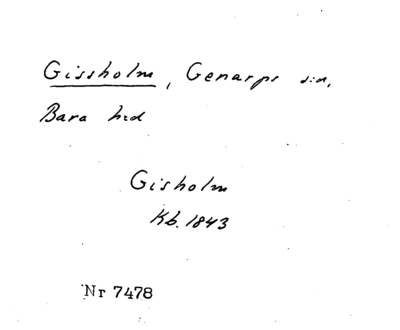 Gissholm, Genarps s:n,
Bara hd
Gisholm
Kb. 1843
Nr 7478